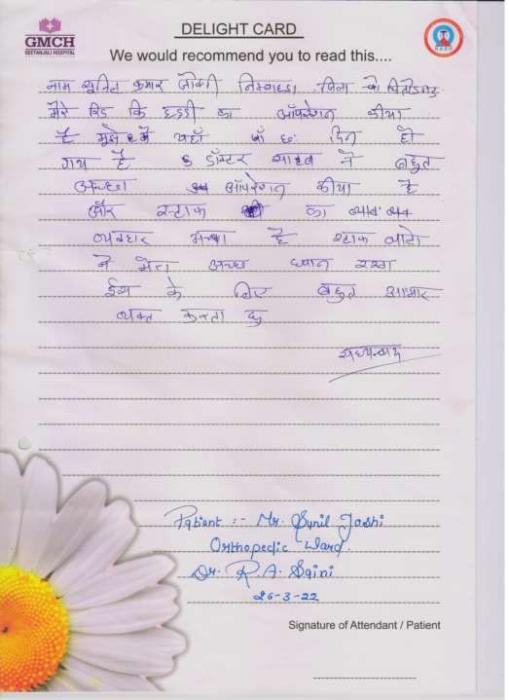 DELIGHT CARD
GMCH
GEETANJALI HOSPITAL
We would recommend you to read this....
नाम सुनिल कुमार जोशी निम्बाहेडा जिला
मेरे रिड कि हडडी का ऑपरेशन कीया
है मुझे यहाँ छः दिन हो
गय है डॉक्टर साहब ने बहुत
अच्छा ऑपरेशन कीया है
और स्टाफ का
व्यवहार अच्छा है स्टाफ वालो
ने मेरा अच्छा ध्यान रखा
ईस के लिए बहुत आभार
व्यक्त करता हु
Patient :- Mr. Sunil Joshi
Orthopedic Ward.
Dr. R.A. Saini
26-3-22
Signature of Attendant / Patient